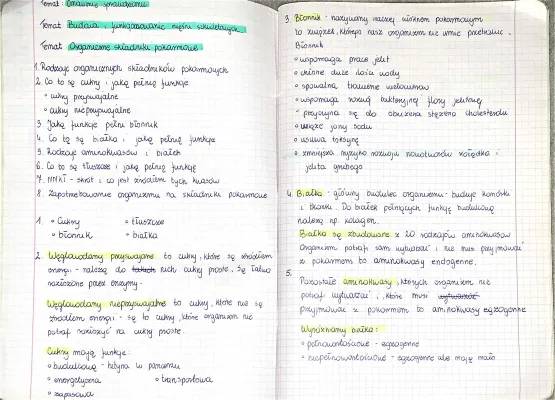 Temat: Omówienie sprawdzianu
Temat: Budowa i funkcjonowanie mięśni szkieletowych.
Temat: Organiczne składniki pokarmowe
1. Rodzaje organicznych składników pokarmowych
2. Co to są cukry i jakie pełnię funkcje
• cukry przyswajalne
• cukry nieprzyswajalne
3. Jakie funkcje pełni błonnik
4. Co to są białka i jakie pełnię funkcje
5. Rodzaje aminokwasów i białek
6. Co to są tłuszcze i jakie pełnię funkcje
7. NNKT - skrót i co jest źródłem tych kwasów
8. Zapotrzebowanie organizmu na składniki pokarmowe
1. • Cukry • tłuszcze
• błonnik • białka
2. Węglowodany przyswajane to cukry, które są źródłem
energii - należą do takich nich cukry proste. Są łatwo
rozłożone przez enzymy.
Węglowodany nieprzyswajalne to cukry, które nie są
źródłem energii - są to cukry, które organizm nie
potrafi rozłożyć na cukry proste.
Cukry mają funkcje:
• budulcową - chityna w pancerzu
• energetyczna • transportowa
• zapasowa
3. Błonnik - nazywany inaczej włóknem pokarmowym
to związek, którego nasz organizm nie umie przetrawić.
Błonnik
• wspomaga pracę jelit
• chłonie duże ilości wody
• spowalnia trawienie węglowodanów
• wspomaga rozwój bakteryjnej flory jelitowej
• przyczynia się do obniżenia stężenia cholesterolu
• wiąże jony sodu
• usuwa toksyny
• zmniejsza ryzyko rozwoju nowotworów żołądka i
jelita grubego
4. Białka - główny budulec organizmu - buduje komórki
i tkanki. Do białek pełniących funkcję budulcową
należą np. kolagen.
Białka są zbudowane z 20 rodzajów aminokwasów
Organizm potrafi sam wytwarzać i nie musi przyjmować
z pokarmem to aminokwasy endogenne.
5.
Pozostałe aminokwasy, których organizm nie
potrafi wytwarzać i które musi wytwarzać
przyjmować z pokarmem to aminokwasy egzogenne
Wyróżniamy białka:
• pełnowartościowe - egzogenne
• niepełnowartościowe - egzogenne ale mają mało